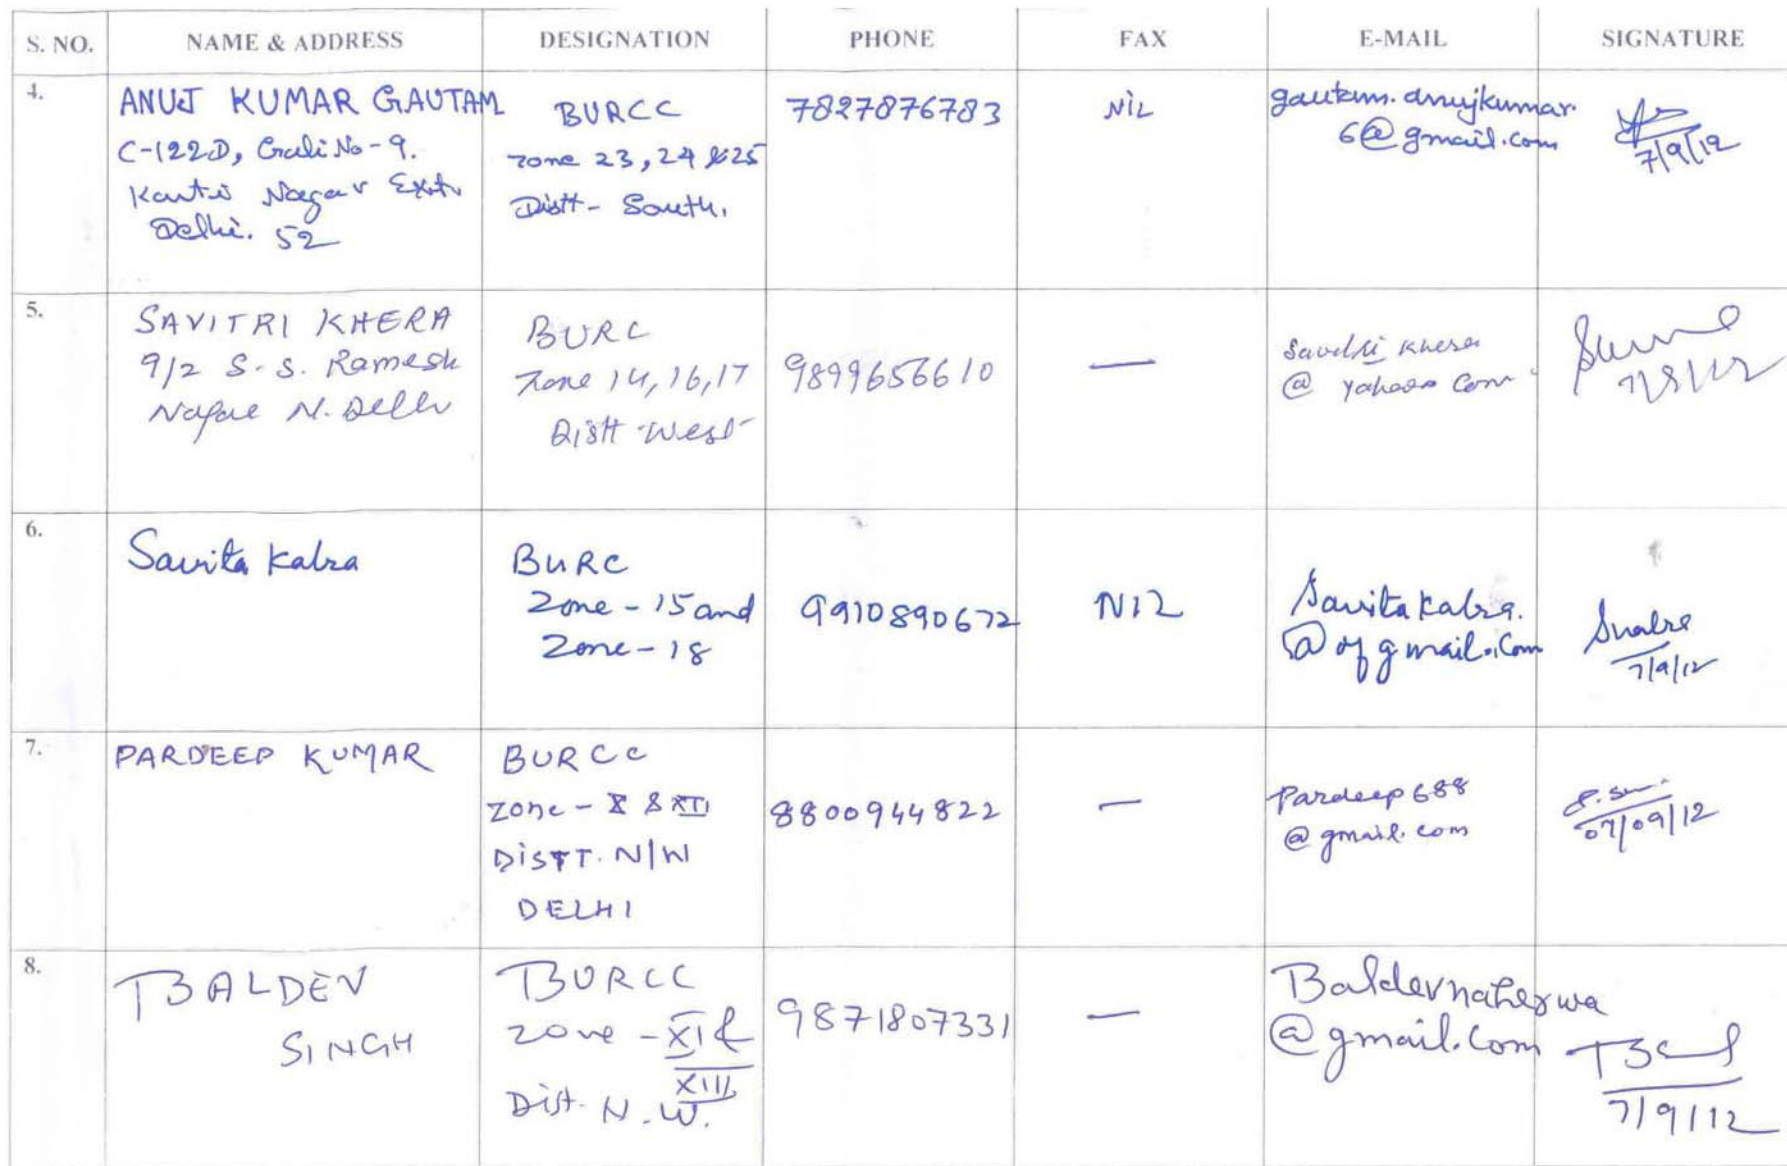 S. NO. NAME & ADDRESS DESIGNATION PHONE FAX E-MAIL SIGNATURE
4.
ANUJ KUMAR GAUTAM
C-122D, Gali No-9.
Kanti Nagar Extn
Delhi. 52
BURCC
zone 23, 24 & 25
Distt- South.
7827876783
NiL
gautam.anujkumar.
6@gmail.com
7/9/12
5.
SAVITRI KHERA
9/2 S.S. Ramesh
Nagar N. Delhi
BURC
Zone 14, 16, 17
Distt West
9899656610
—
Savitri Khera
@ yahoo Com
6.
Savita Kalra
BURC
Zone - 15 and
Zone - 18
9910890672
NIL
Savitakalra.
@ of gmail.com
7/9/12
7.
PARDEEP KUMAR
BURCC
zone - X & XII
DISTT. N/W
DELHI
8800944822
—
Pardeep688
@gmail.com
07/09/12
8.
BALDEV
SINGH
BURCC
zone - XI &
XIII
Dist. N.W.
9871807331
—
Baldevnaherwa
@gmail.com
7/9/12